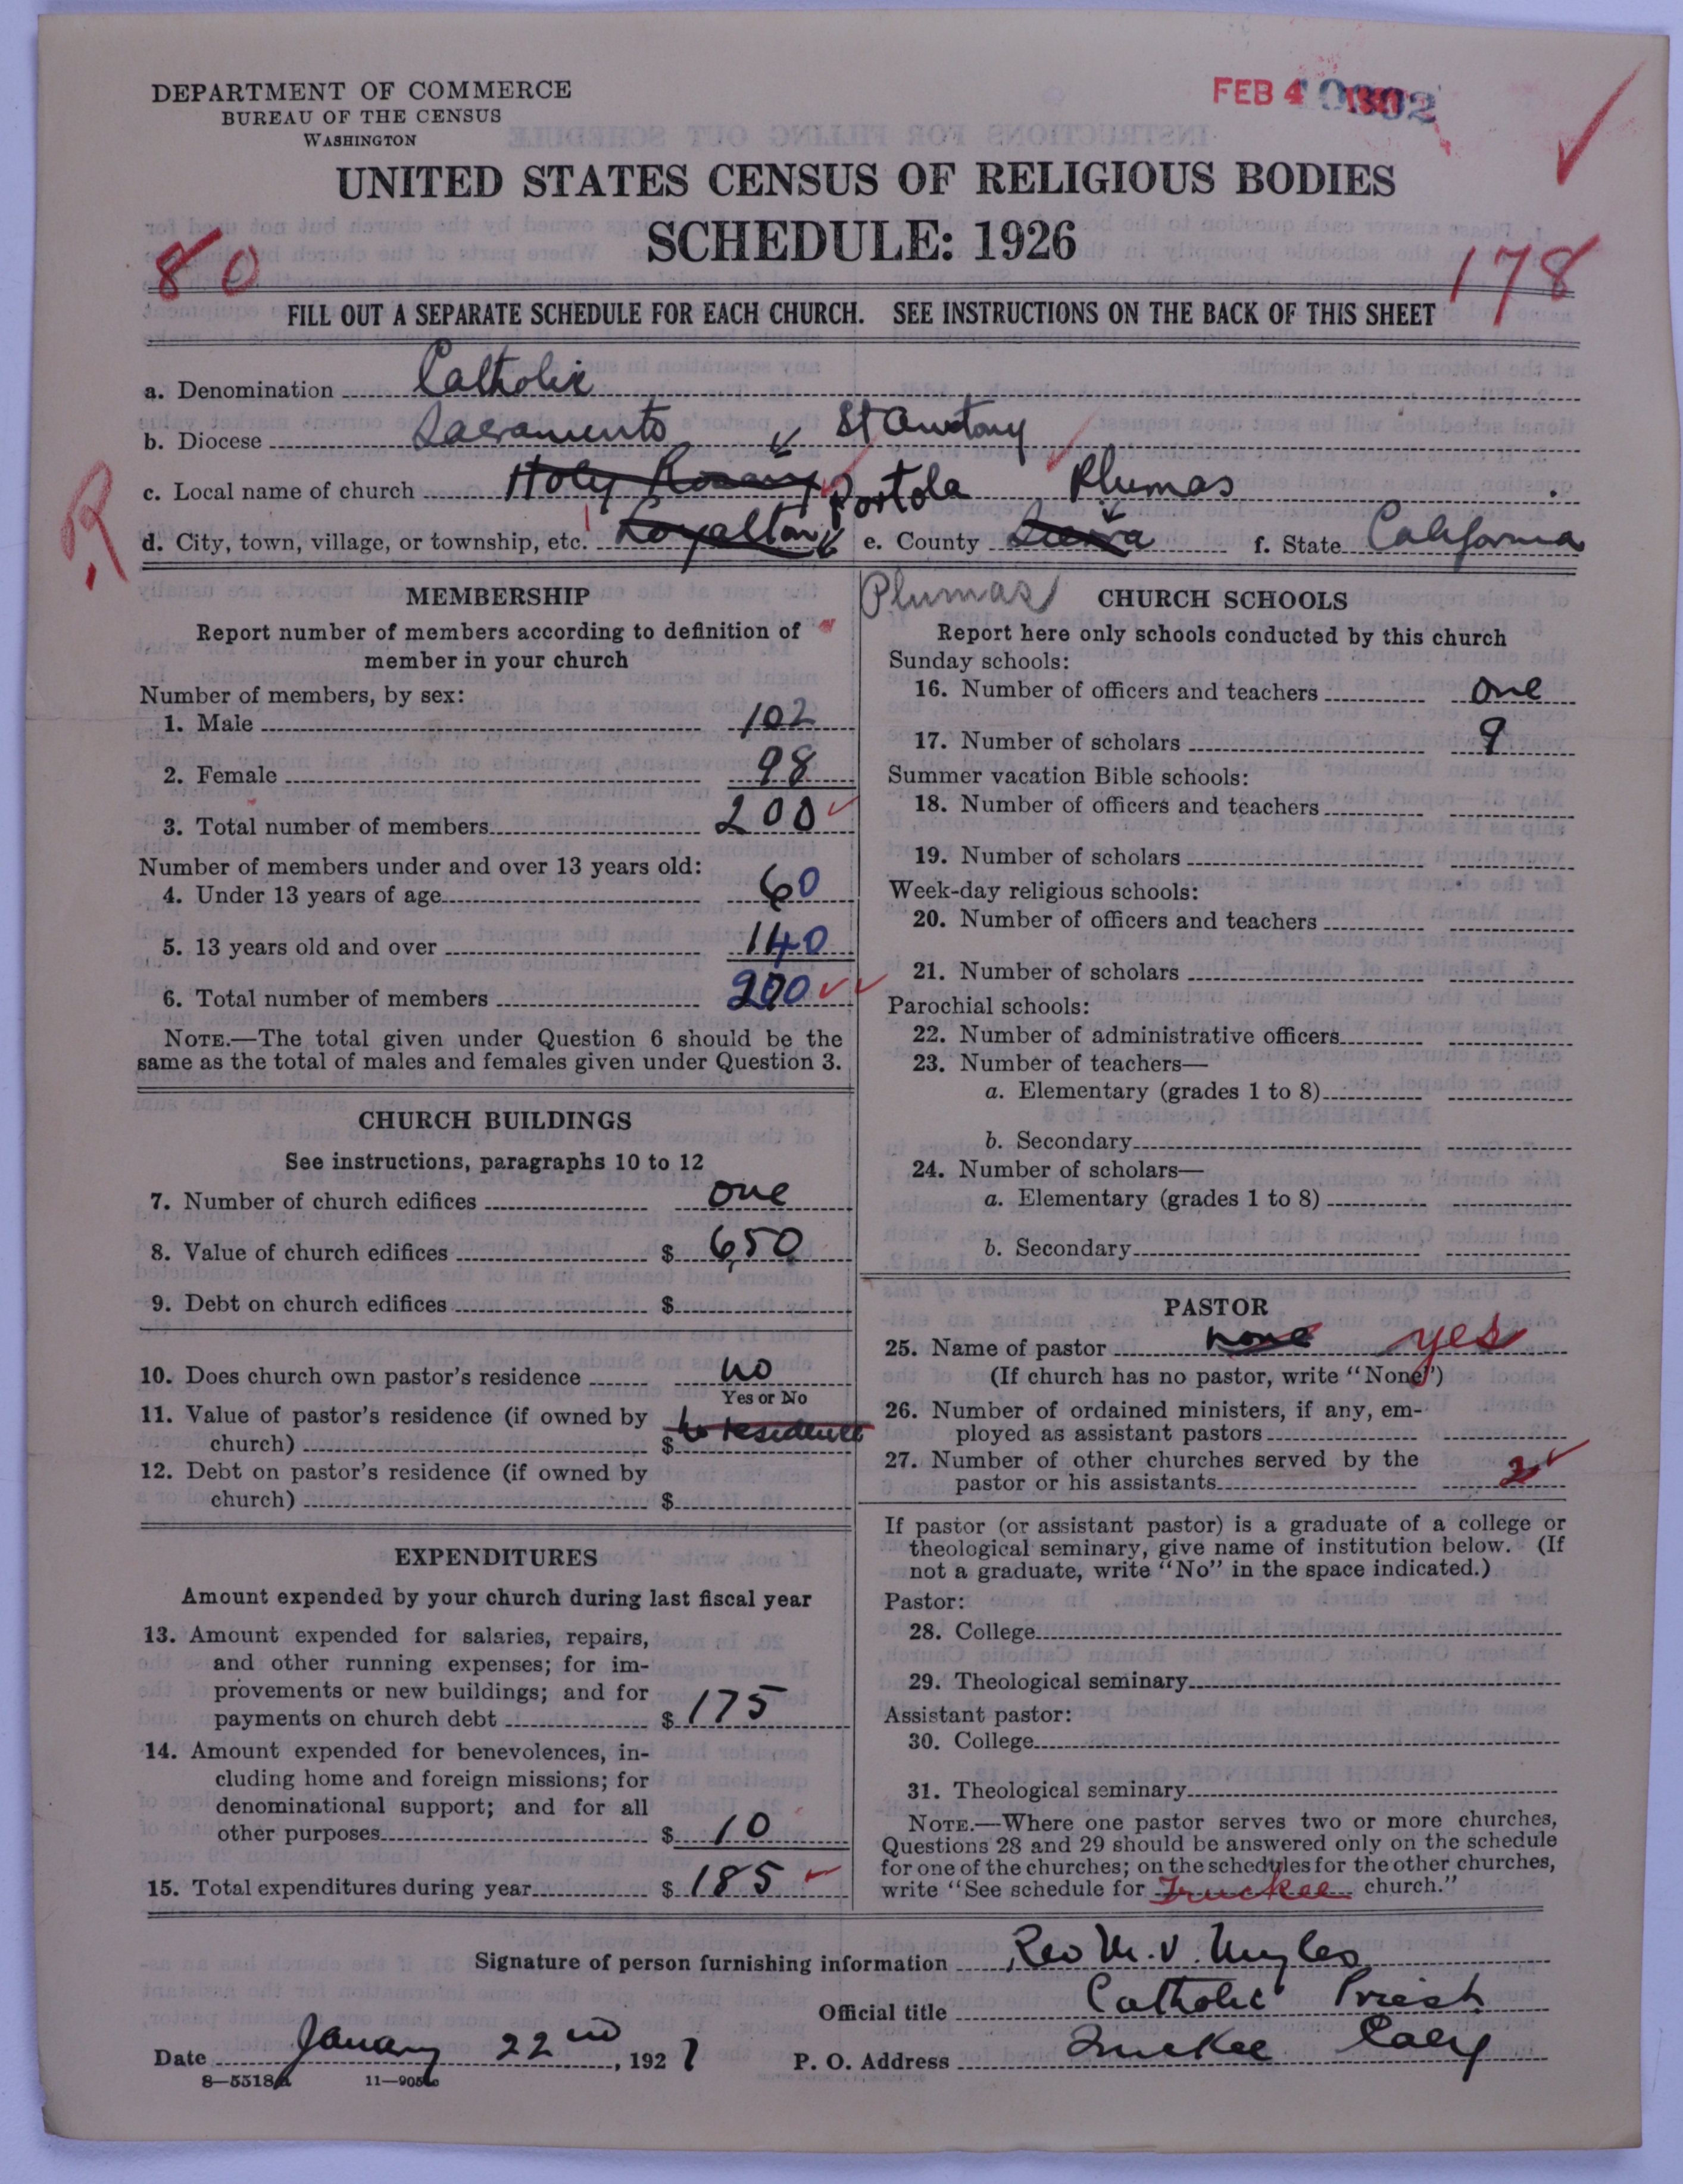 DEPARTMENT OF COMMERCE
BUREAU OF THE CENSUS
WASHINGTON
FEB 4
UNITED STATES CENSUS OF RELIGIOUS BODIES
SCHEDULE: 1926
80
178
FILL OUT A SEPARATE SCHEDULE FOR EACH CHURCH. SEE INSTRUCTIONS ON THE BACK OF THIS SHEET
a. Denomination Catholic
b. Diocese Sacramento St Antony
c. Local name of church Holy Rosary Portola Plumas
R
d. City, town, village, or township, etc. Loyalton e. County Sierra f. State California
MEMBERSHIP
Report number of members according to definition of
member in your church
Number of members, by sex:
1. Male 102
2. Female 98
3. Total number of members 200
Number of members under and over 13 years old:
4. Under 13 years of age 60
5. 13 years old and over 140
6. Total number of members 200
NOTE.—The total given under Question 6 should be the
same as the total of males and females given under Question 3.
CHURCH BUILDINGS
See instructions, paragraphs 10 to 12
7. Number of church edifices one
8. Value of church edifices $ 650
9. Debt on church edifices $
10. Does church own pastor's residence no
Yes or No
11. Value of pastor's residence (if owned by
church) $ residence
12. Debt on pastor's residence (if owned by
church) $
EXPENDITURES
Amount expended by your church during last fiscal year
13. Amount expended for salaries, repairs,
and other running expenses; for im-
provements or new buildings; and for
payments on church debt $ 175
14. Amount expended for benevolences, in-
cluding home and foreign missions; for
denominational support; and for all
other purposes $ 10
15. Total expenditures during year $ 185
Plumas
CHURCH SCHOOLS
Report here only schools conducted by this church
Sunday schools:
16. Number of officers and teachers one
17. Number of scholars 9
Summer vacation Bible schools:
18. Number of officers and teachers
19. Number of scholars
Week-day religious schools:
20. Number of officers and teachers
21. Number of scholars
Parochial schools:
22. Number of administrative officers
23. Number of teachers—
a. Elementary (grades 1 to 8)
b. Secondary
24. Number of scholars—
a. Elementary (grades 1 to 8)
b. Secondary
PASTOR
25. Name of pastor none yes
(If church has no pastor, write "None")
26. Number of ordained ministers, if any, em-
ployed as assistant pastors
27. Number of other churches served by the
pastor or his assistants
If pastor (or assistant pastor) is a graduate of a college or
theological seminary, give name of institution below. (If
not a graduate, write "No" in the space indicated.)
Pastor:
28. College
29. Theological seminary
Assistant pastor:
30. College
31. Theological seminary
NOTE.—Where one pastor serves two or more churches,
Questions 28 and 29 should be answered only on the schedule
for one of the churches; on the schedules for the other churches,
write "See schedule for Truckee church."
Signature of person furnishing information Rev M. V.
Official title Catholic Priest
Date January 22nd, 1927 P. O. Address Truckee
8—5518a 11—9051